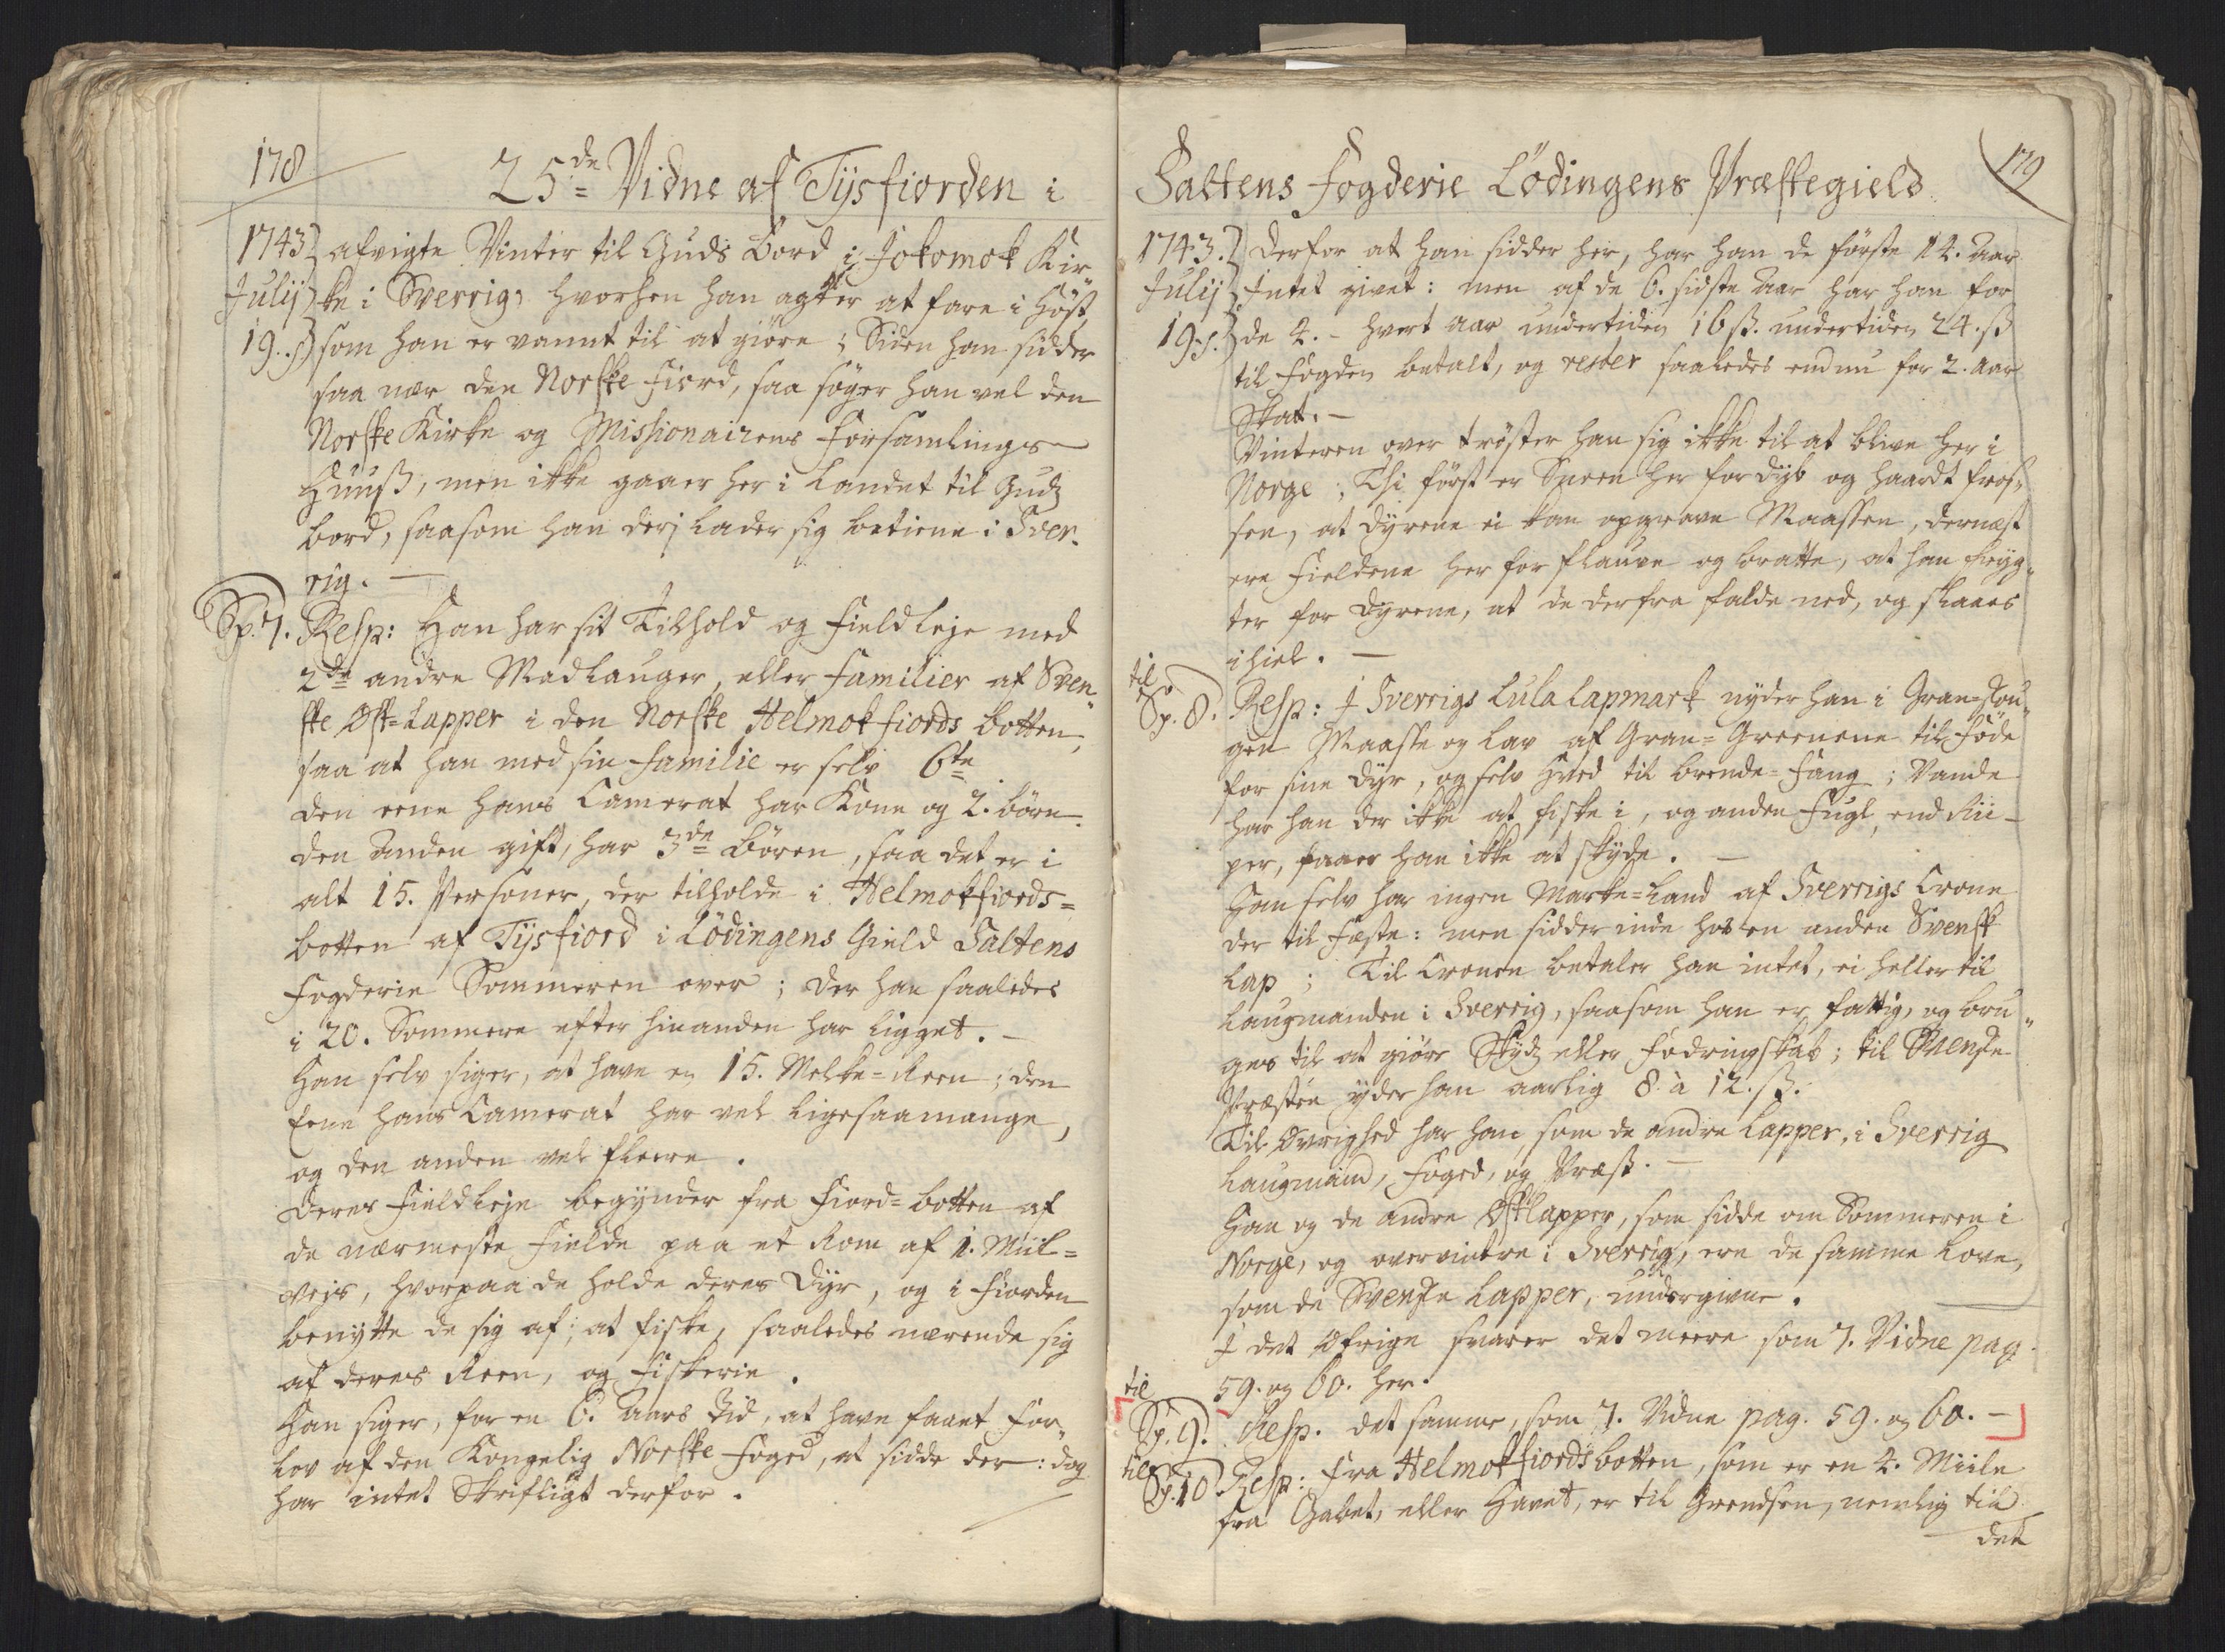 178
25de Vidne af Tysfiorden i
1743 afvigte Vinter til Guds Bord i Jokomok Kir
Julij ke i Sverrig, hvorhen han agter at fare i Høst
19. s) som han er vannt til at giöre; Siden han sidder
saa nær den Norske Fiord, saa søger han vel den
Norske Kirke og Missionairens Forsamlings-
Huuss, men ikke gaaer her i Landet til Gudz
bord, saasom han derj lader sig betiene i Sver-
rig. —
Sp. 7. Resp: Han har sit Tilhold og Fieldleje med
2de andre Madlauger, eller Familier af Sven"
ske Øst-Lapper i den Norske Helmokfiords botten,
saa at han med sin Familie er selv 6te
den eene hans Camerat har Kone og 2. börn.
den anden gift, har 3de Börn, saa det er i
alt 15. Personer, der tilholde i Helmokfiords=
botten af Tysfiord i Lödingens Gield Saltens
Fogderie Sommeren over; der han saaledes
i 20. Sommere efter hinanden har ligget. —
Han selv siger, at have en 15. Melke-Reen; den
Eene hans Camerat har vel ligesaamange,
og den anden vel fleere.
Deres Fieldleje begynder fra Fiord-botten af
de nærmeste Fielde paa et Rom af 1. Miil=
vejs, hvorpaa de holde deres Dyr, og i Fiorden
benytte de sig af, at fiske, saaledes nærende sig
af deres Reen, og Fiskerie.
Han siger, for en 6. Aars Tid, at have faaet For-
lov af den Kongelig Norske Foged, at sidde der: dog
har intet Skriftligt derfor.
Saltens Fogderie Lödingens Præstegield
179
1743. derfor at han sidder her, har han de förste 14. Aar
Julij Intet givet: men af de 6. sidste Aar har han for
19. s. de 4. - hvert Aar undertiden 16 ß. undertiden 24. ß
til Fogden betalt, og rester saaledes endnu for 2. Aar
Skat. —
Vinteren over tröster han sig ikke til at blive her i
Norge; Thi först er Sneen her for dyb og haardt fros"
sen, at dyrene ei kan opgrave Maassen, dernæst
ere Fieldene her for flauve og bratte, at han fryg"
ter for Dyrene, at de derfra falde ned, og slaaes
ihiel. —
til
Sp. 8. Resp: I Sverrigs Lula Lapmark nyder han i Gran-Skou"
gen Maasse og Lav af Gran-Greenene til Föde
for sine Dyr, og selv Hved til brende-Fang; Vande
har han der ikke at fiske i, og anden Fugl, end Rii-
per, faaer han ikke at skyde. —
Han selv har ingen Marke-Land af Sverrigs Crone
der til Fæste: men sidder inde hos en anden Svensk
Lap; Til Cronen betaler han intet, ei heller til
Laugmanden i Sverrig, saasom han er fattig, og bru"
ges til at giöre Skydz eller Fodringskab; til Svenske
Præsten yder han aarlig 8. à 12. ß.
Til Øvrighed har han som de andre Lapper, i Sverrig
Laugmand, Foged, og Præst. —
Han og de andre Østlapper, som sidde om Sommeren i
Norge, og overvintre i Sverrig, ere de samme Love,
som de Svenske Lapper, undergivne.
I det øfrige svarer det meere som 7. Vidne pag.
59. og 60. her.
til
Sp. 9. Resp. det samme, som 7. Vidne pag. 59. og 60. —
til
Sp. 10 Resp: Fra Helmokfiordsbotten, som er en 4. Miile
fra Gabet, eller Havet, er til Grendsen, nemlig til
det